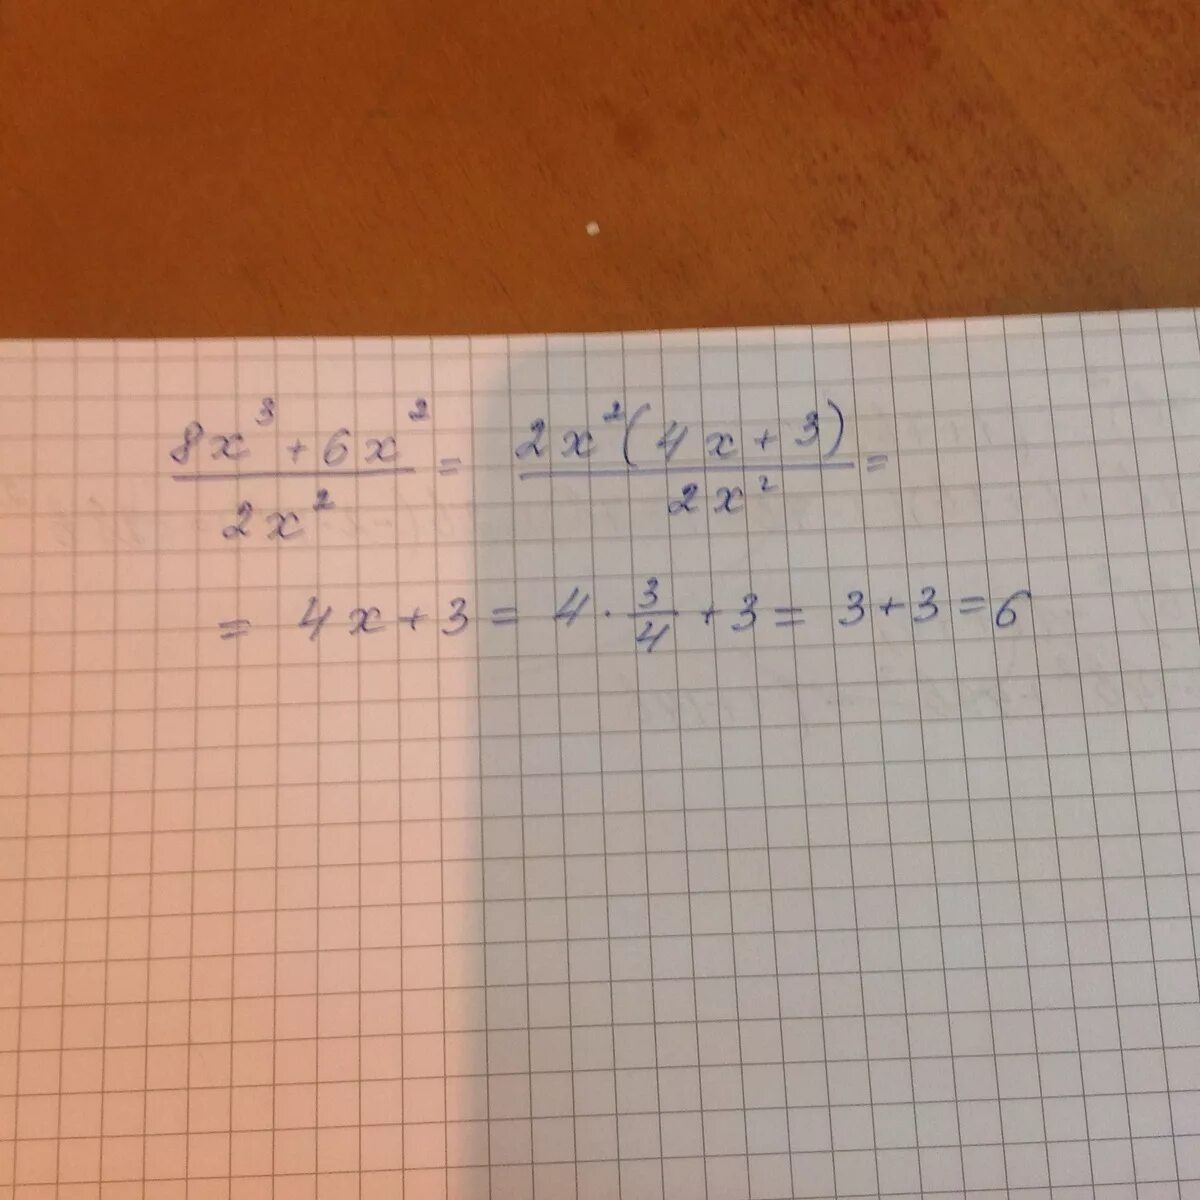 (8x³ + 6x²)/(2x²) = (2x²(4x + 3))/(2x²) =
= 4x + 3 = 4 · 3/4 + 3 = 3 + 3 = 6